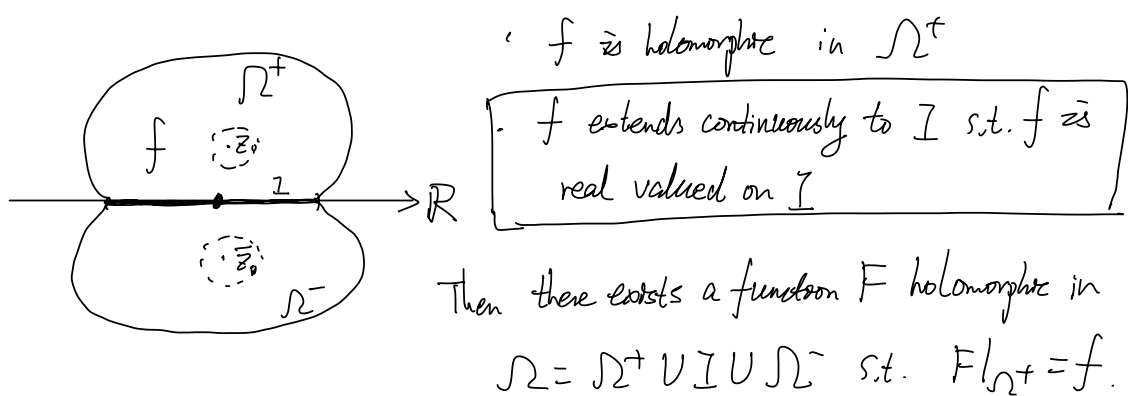 · f is holomorphic in Ω⁺
Ω⁺
· f extends continuously to I s.t. f is
real valued on I
f
z₀
I
ℝ
z̄₀
Ω⁻
Then there exists a function F holomorphic in
Ω = Ω⁺ ∪ I ∪ Ω⁻ s.t. F|Ω⁺ = f.